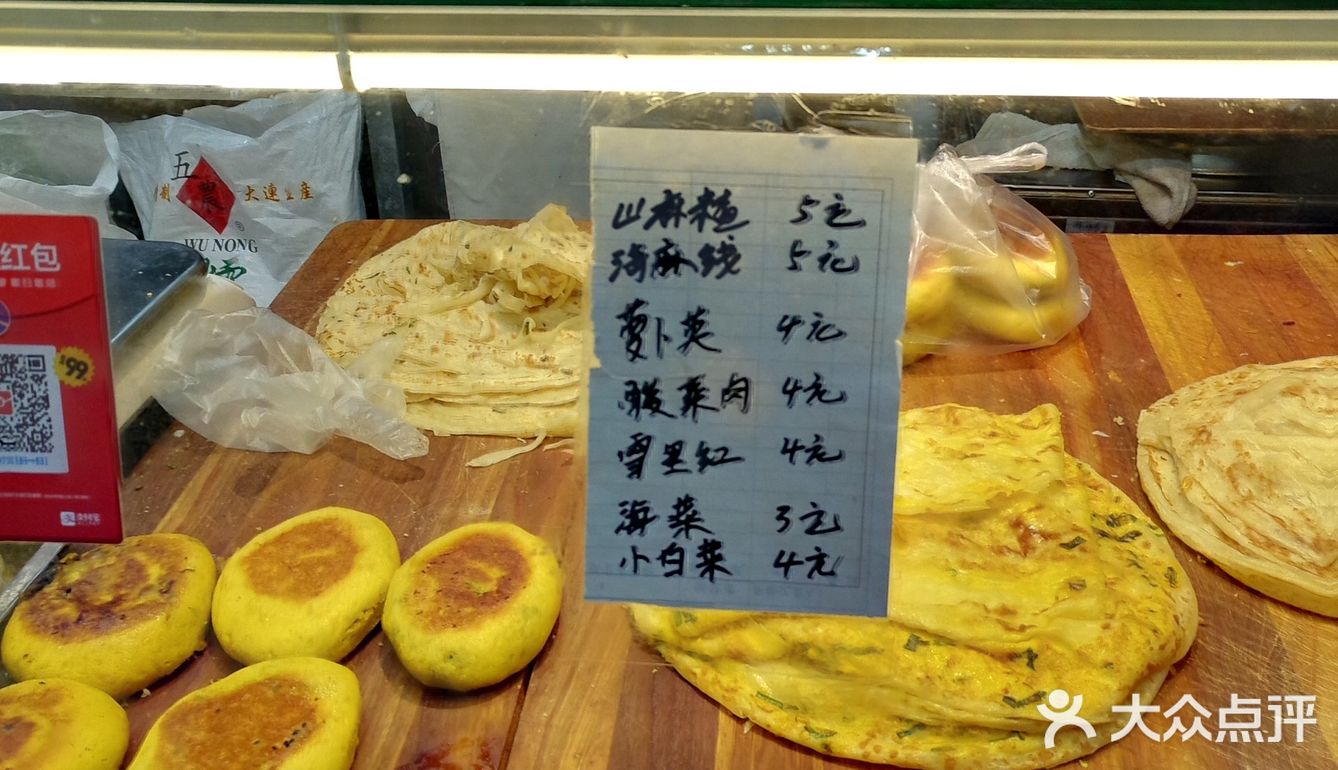 五
農
大連土産
WU NONG
红包
$99
支付宝
山麻楂 5元
海麻线 5元
萝卜英 4元
酸菜肉 4元
雪里红 4元
海菜 3元
小白菜 4元
大众点评